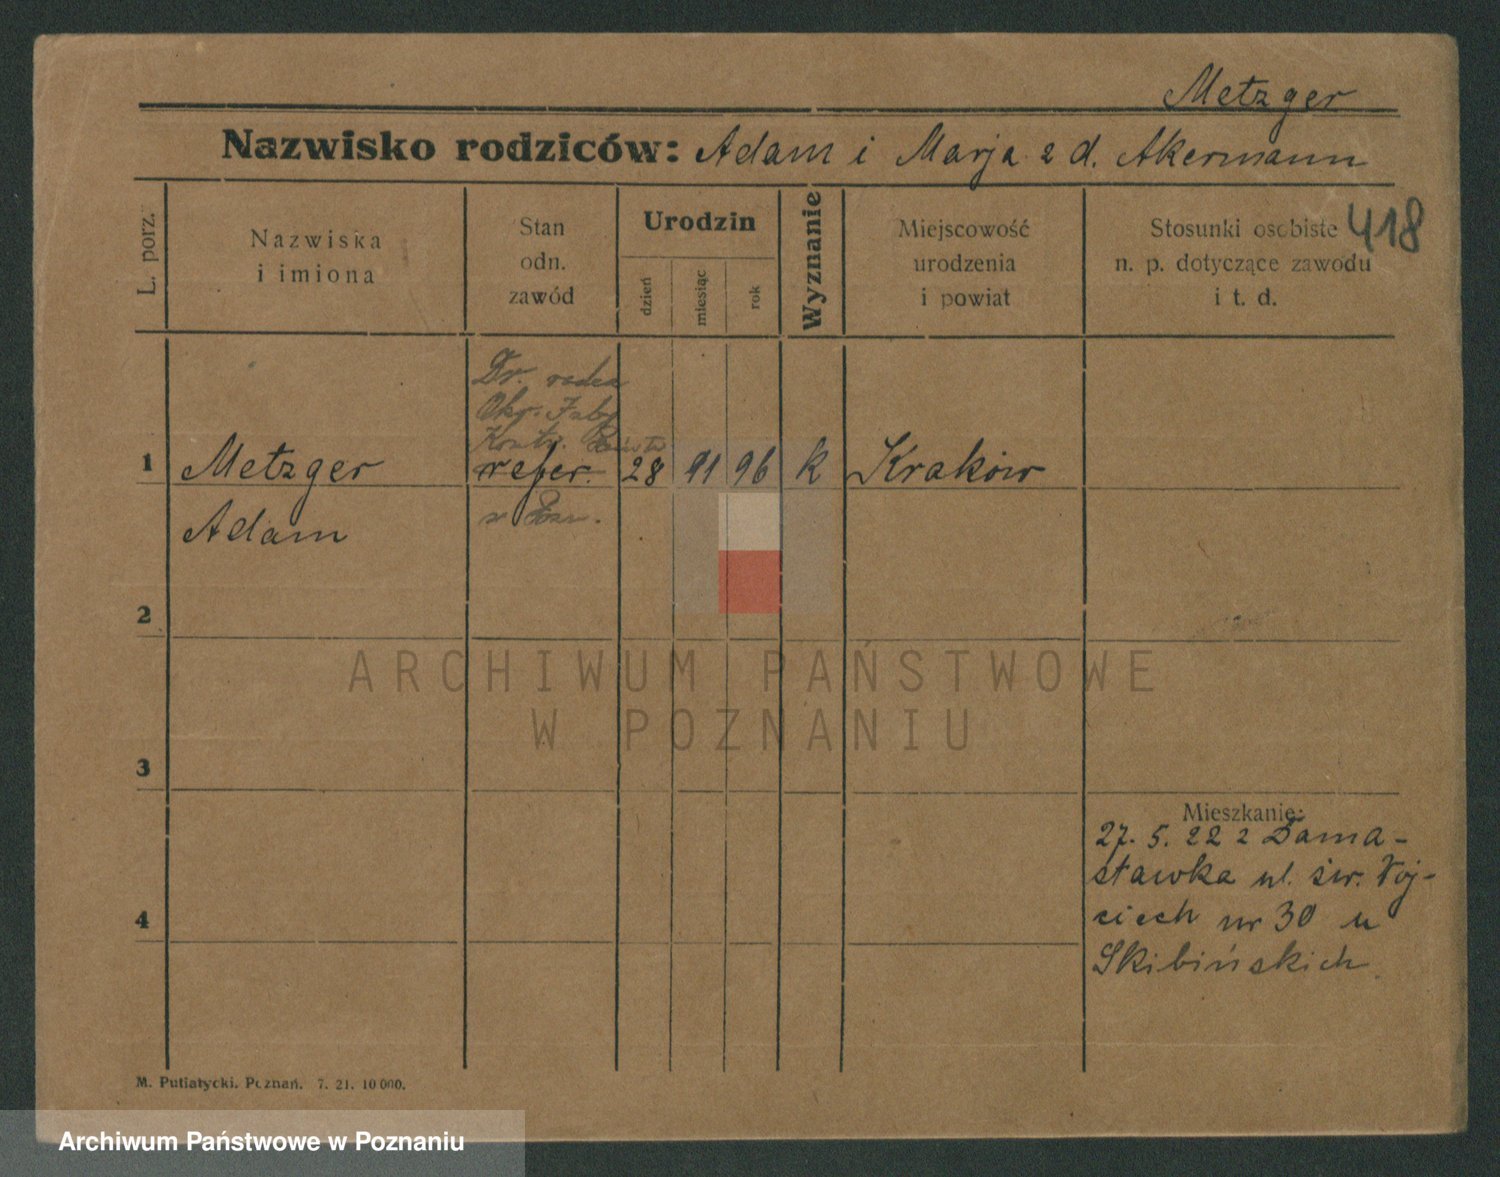 Metzger
Nazwisko rodziców: Adam i Marja z d. Akermann
418
L. porz.
Nazwiska
i imiona
Stan
odn.
zawód
Urodzin
dzień
miesiąc
rok
Wyznanie
Miejscowość
urodzenia
i powiat
Stosunki osobiste
n. p. dotyczące zawodu
i t. d.
Dr. radca
Okr.
Kontr.
1 Metzger refer. 28 11 96 k Kraków
Adam
2
3
4
Mieszkanie:
27. 5. 22 z Dama-
sławka ul. św. Woj-
ciech nr 30 u
Skibińskich
M. Putiatycki. Poznań. 7. 21. 10 000.
ARCHIWUM PAŃSTWOWE
W POZNANIU
Archiwum Państwowe w Poznaniu